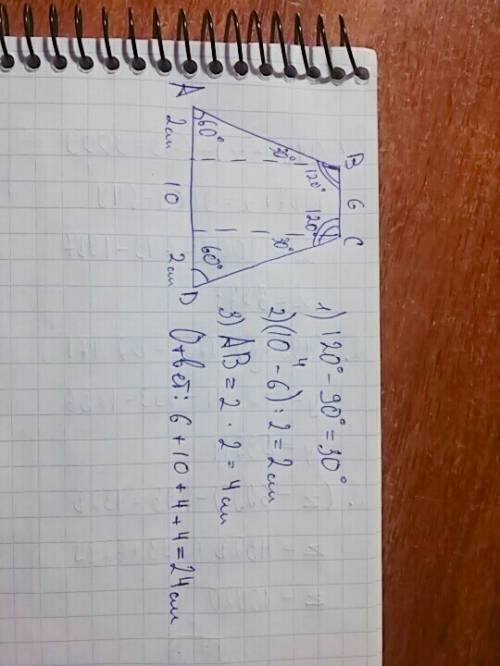 B 6 C
120° 120°
30° 30°
60° 60°
A 2см 10 2см D
1) 120° - 90° = 30°
4
2) (10 - 6) : 2 = 2см
3) AB = 2 · 2 = 4см
Ответ: 6 + 10 + 4 + 4 = 24см